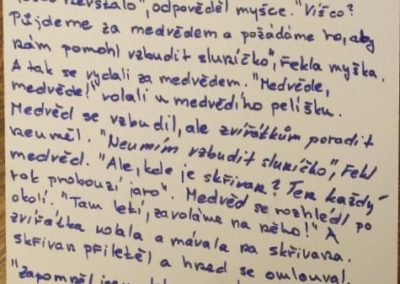 nevstalo", odpověděl myšce. "Víš co?
Půjdeme za medvědem a požádáme ho, aby
nám pomohl vzbudit sluníčko", řekla myška.
A tak se vydali za medvědem. "Medvěde,
medvěde!" volali u medvědího pelíšku.
Medvěd se vzbudil, ale zvířátkům poradit
neuměl. "Neumím vzbudit sluníčko", řekl
medvěd. "Ale, kde je skřivan? Ten každý
rok probouzí jaro". Medvěd se rozhlédl po
okolí. "Tam letí, zavoláme na něho!" A
zvířátka volala a mávala na skřivana.
Skřivan přiletěl a hned se omlouval.
"Zapomněl